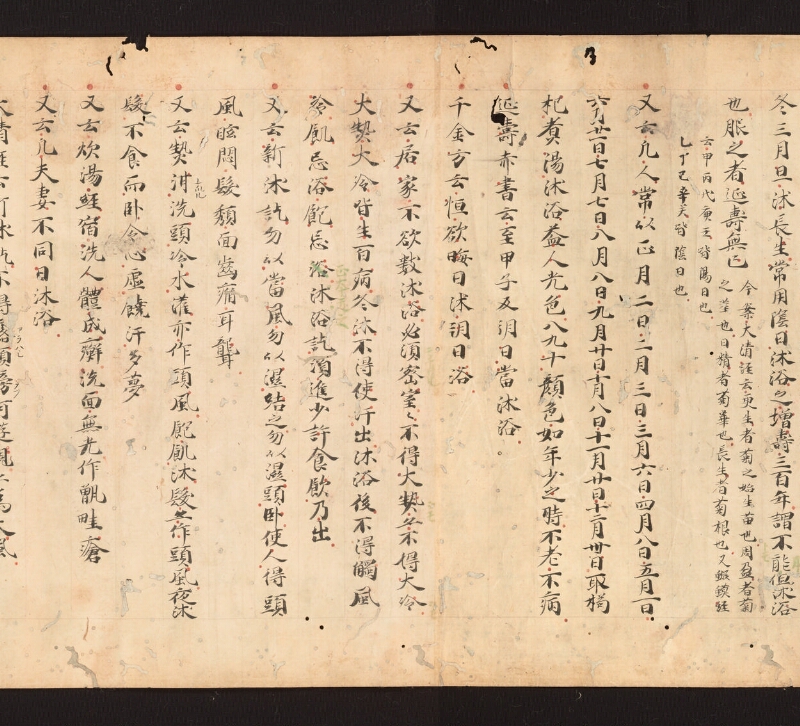 冬三月旦沐長生常用陰日沐浴之增壽三百年謂不能但沐浴
也服之者延壽無已
今案大清経云更生者菊之始生苗也周盈者菊
之莖也日精者菊華也長生者菊根也又蝦蟆経
云甲丙戊庚壬皆陽日也
乙丁己辛癸皆陰日也
又云凡人常以正月二日二月三日三月六日四月八日五月一日
六月廿一日七月七日八月八日九月廿日十月八日十一月廿日十二月卅日取枸
杞煮湯沐浴益人光色八九十顏色如年少之時不老不病
延壽赤書云至甲子及朔日當沐浴
千金方云恒欲晦日沐朔日浴
又云居家不欲數沐浴必須密室々不得大熱亦不得大冷
大熱大冷皆生百病冬沐不得使汗出沐浴後不得觸風
冷飢忌浴飽忌沐沐浴訖須進少許食飲乃出
又云新沐訖勿以當風勿以濕結之勿以濕頭臥使人得頭
風眩悶髮頽面齒痛耳聾
又云熱泔洗頭冷水灌亦作頭風飽飢沐髮亦作頭風夜沐
髮不食而臥令心虛饒汗多夢
又云炊湯経宿洗人體成癬洗面無光作甑畦瘡
又云凡夫妻不同日沐浴